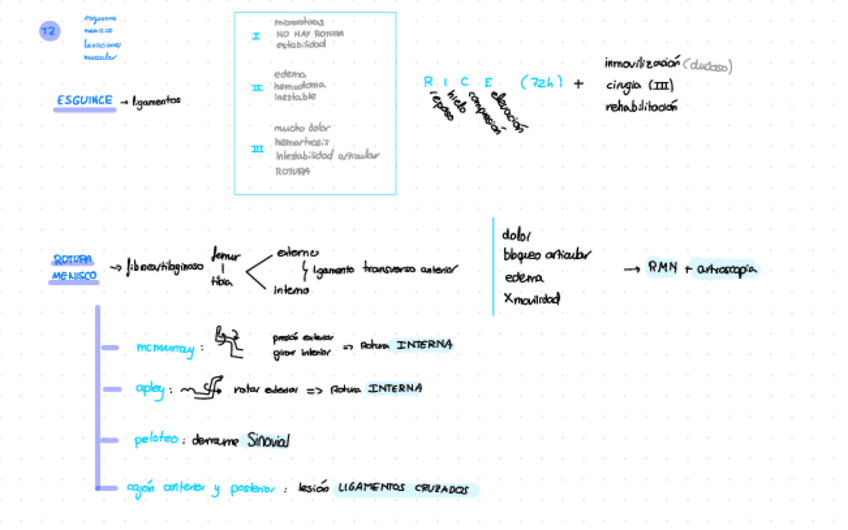 T2
esguince
menisco
luxaciones
muscular
ESGUINCE → ligamentos
I
microroturas
NO HAY ROTURA
estabilidad
II
edema
hematoma
Inestable
III
mucho dolor
hemartrosis
Inestabilidad articular
ROTURA
R I C E (72h) +
reposo
hielo
compresión
elevación
inmovilización (dudoso)
cirugia (III)
rehabilitación
ROTURA
MENISCO
→ fibrocartilaginoso
femur
tibia
externo
ligamento transverso anterior
interno
dolor
bloqueo articular
edema
X movilidad
→ RMN + artroscopia
mcmurray :
presión exterior
girar interior
=> Rotura INTERNA
apley : rotar exterior => Rotura INTERNA
peloteo : derrame Sinovial
cajón anterior y posterior : lesión LIGAMENTOS CRUZADOS